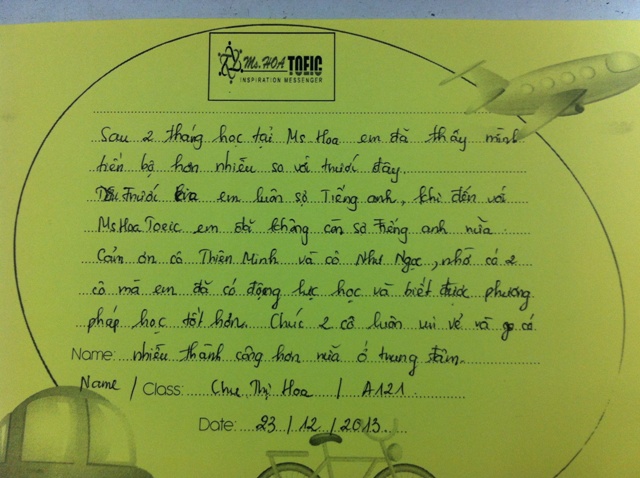 Ms. HOA TOEIC
INSPIRATION MESSENGER
Sau 2 tháng học tại Ms Hoa em đã thấy mình
tiến bộ hơn nhiều so với trước đây.
Từ trước em luôn sợ Tiếng anh, khi đến với
Ms Hoa Toeic em đã không còn sợ tiếng anh nữa.
Cảm ơn cô Thiên Minh và cô Như Ngọc, nhờ có 2
cô mà em đã có động lực học và biết được phương
pháp học tốt hơn. Chúc 2 cô luôn vui vẻ và có
Name: nhiều thành công hơn nữa ở trung tâm.
Name / Class: Chu Thị Hoa / A121
Date: 23 / 12 / 2013.